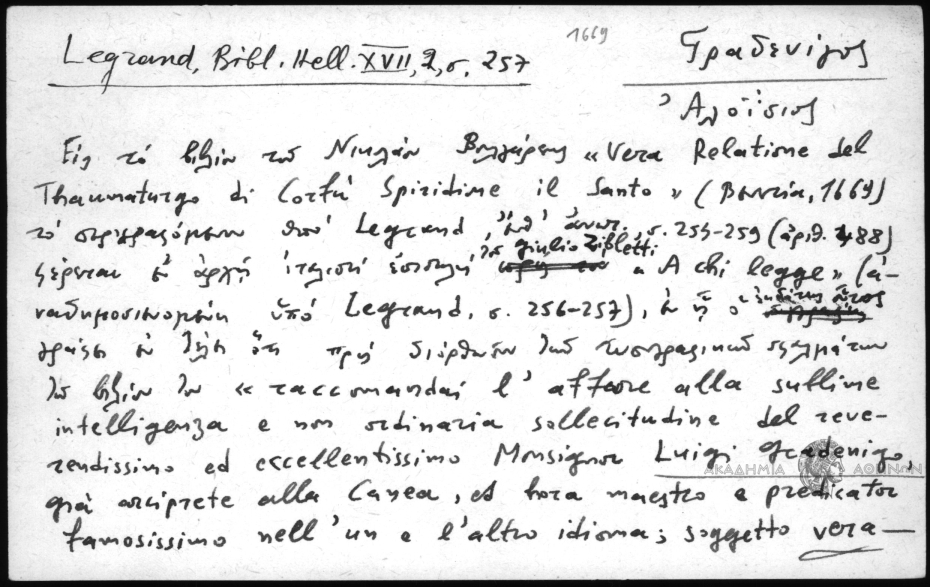 1669
Legrand, Bibl. Hell. XVII, 2, σ. 257
Γραδενίγος
Ἀλοΐσιος
Εἰς τὸ βιβλίον τοῦ Νικολάου Βουλγάρεως «Vera Relatione del
Thaumaturgo di Corfù Spiridione il Santo» (Βενετία, 1669)
τὸ περιγραφόμενον ὑπὸ Legrand, ἔνθ' ἀνωτ., σ. 254-259 (ἀριθ. 488)
φέρεται ἐν ἀρχῇ ἰταλιστὶ ἐπιστολὴ τοῦ Giulio Zibletti «A chi legge» (ἀ-
ναδημοσιευομένη ὑπὸ Legrand, σ. 256-257), ἐν ᾗ ὁ ἐκδότης οὗτος
γράφει ἐν τέλει ὅτι πρὸς διόρθωσιν τῶν τυπογραφικῶν σφαλμάτων
τοῦ βιβλίου του «raccomandai l'affare alla sublime
intelligenza e non ordinaria sollecitudine del reve-
rendissimo ed eccellentissimo Monsignor Luigi Gradenigo,
già arciprete alla Canea, et hora maestro e predicator
famosissimo nell'un e l'altro idioma; soggetto vera-
ΑΚΑΔΗΜΙΑ ΑΘΗΝΩΝ